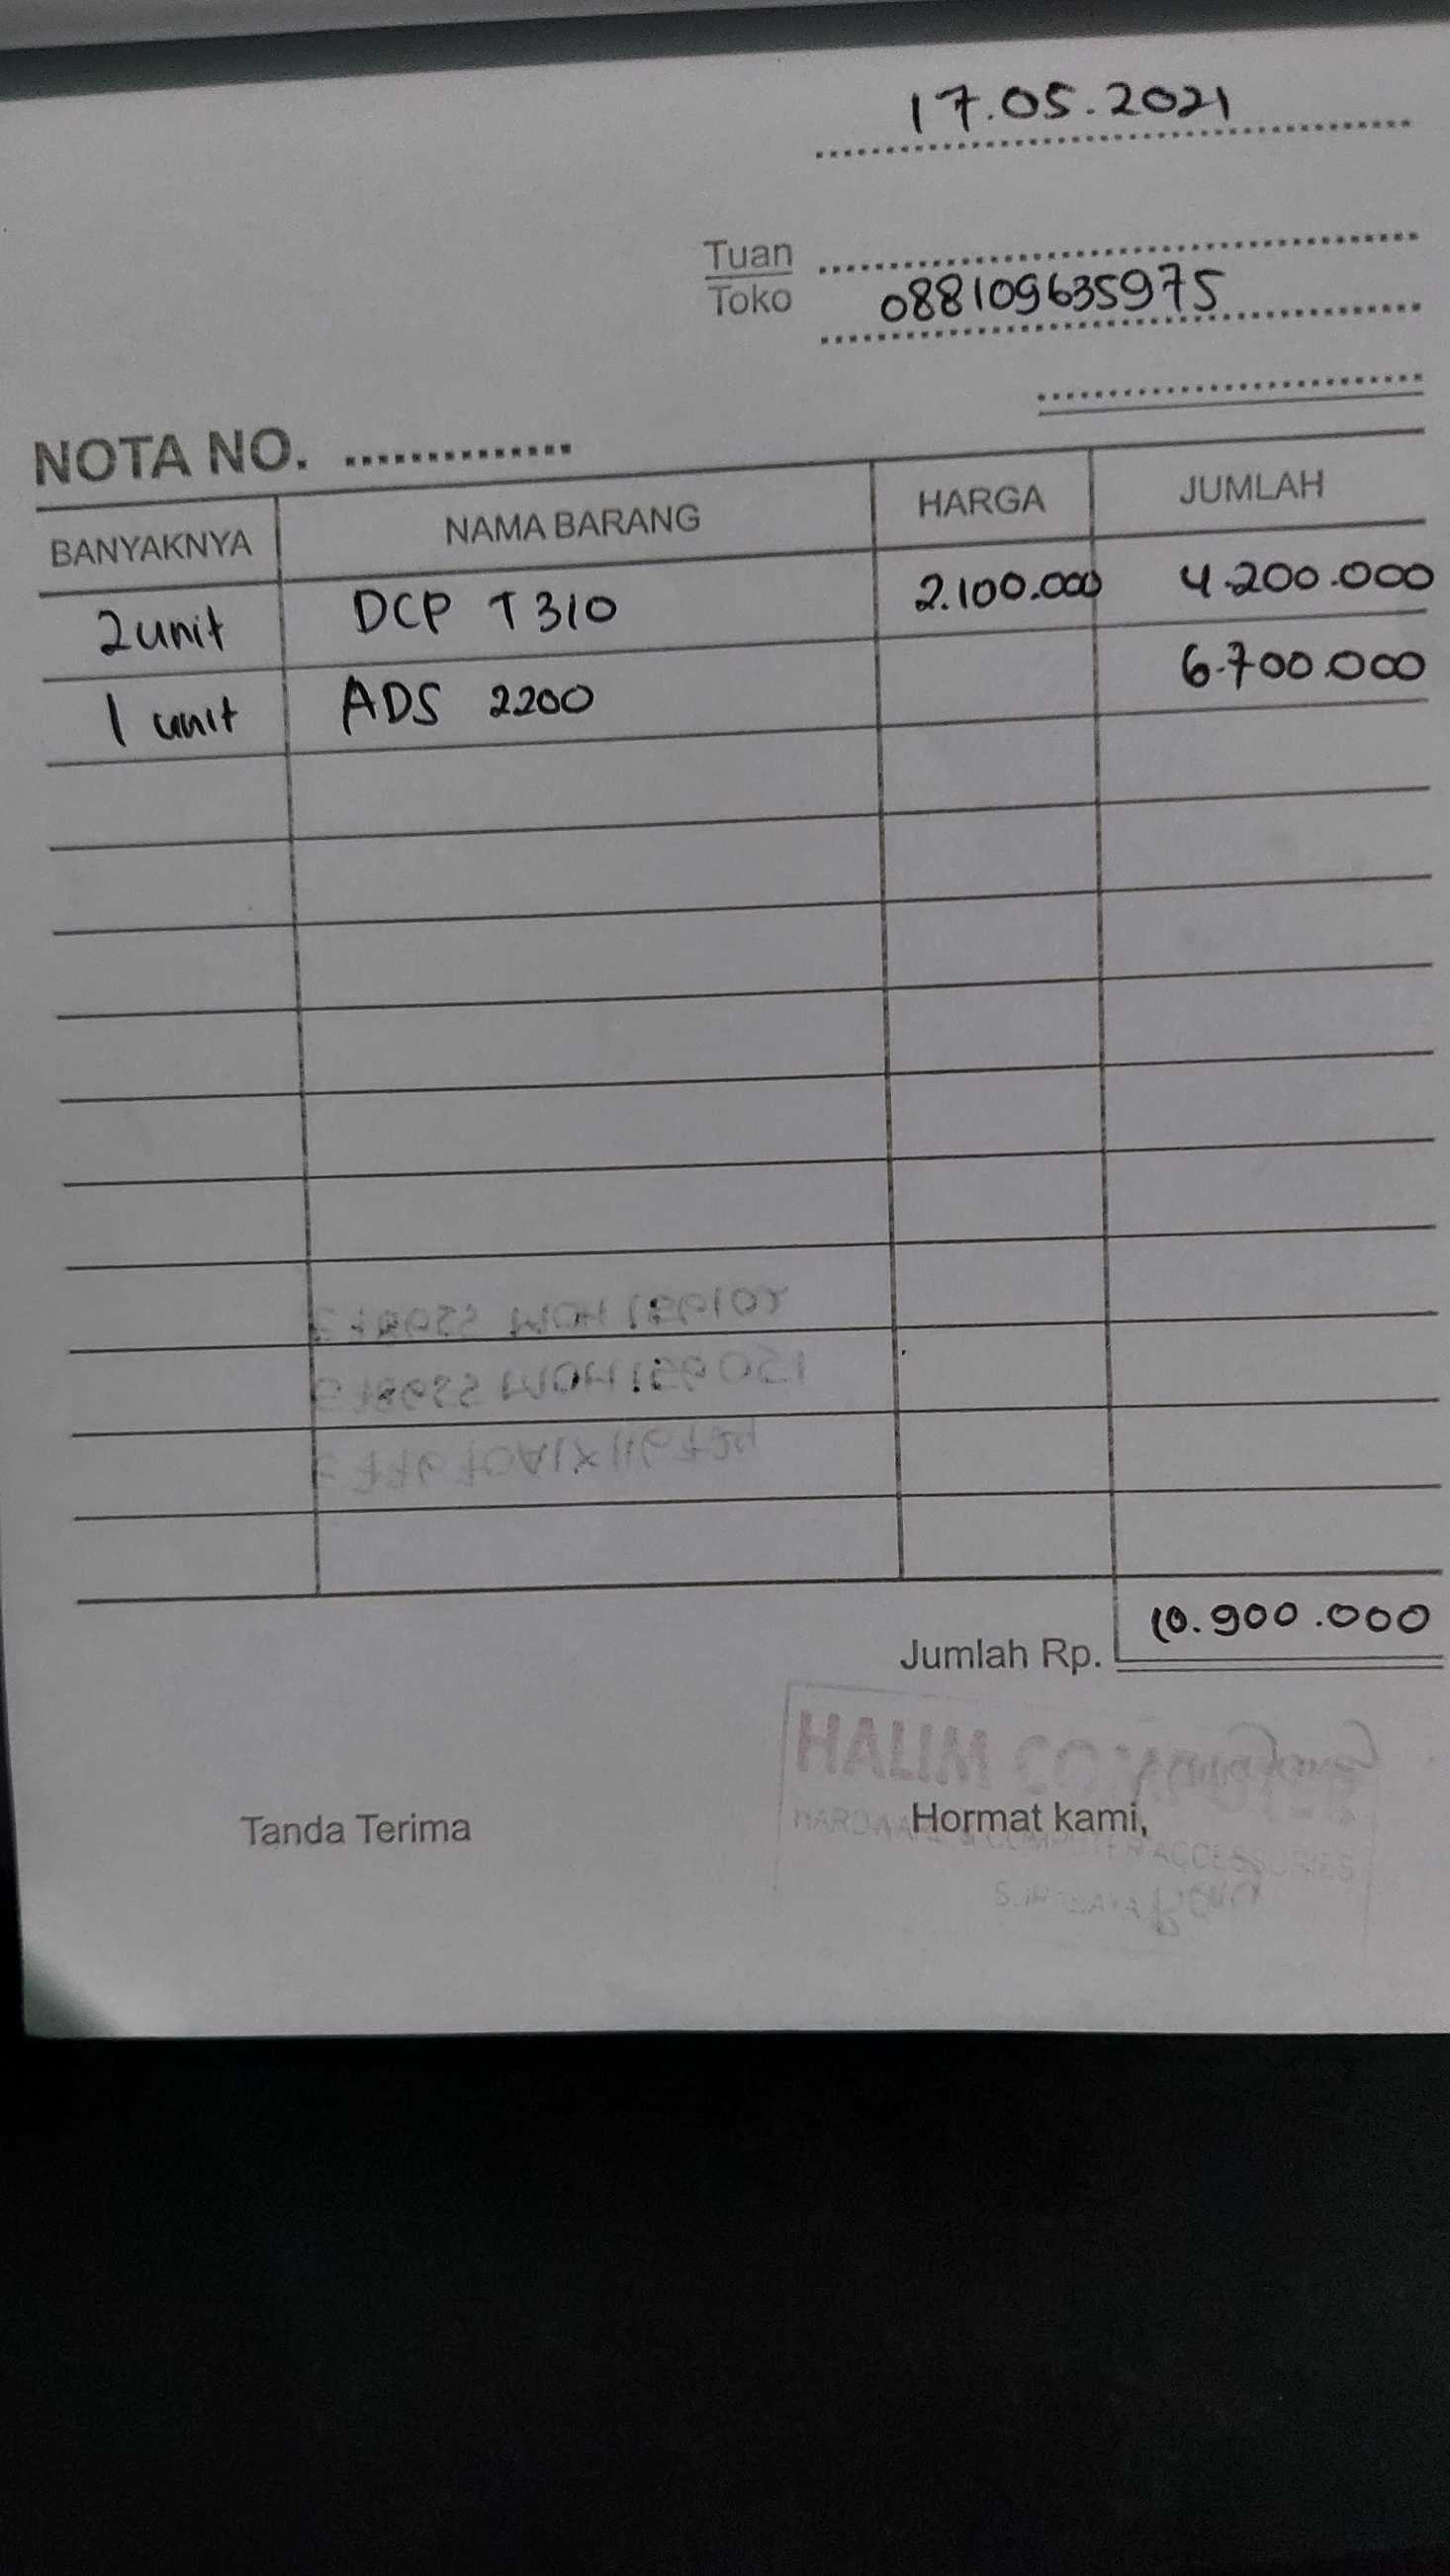 17.05.2021
Tuan
Toko 088109635975
NOTA NO. ..............
BANYAKNYA NAMA BARANG HARGA JUMLAH
2 unit DCP T310 2.100.000 4.200.000
1 unit ADS 2200 6.700.000
Jumlah Rp. 10.900.000
HALIM COMPUTER
Tanda Terima Hormat kami,
HARDWARE & COMPUTER ACCESSORIES
SURABAYA